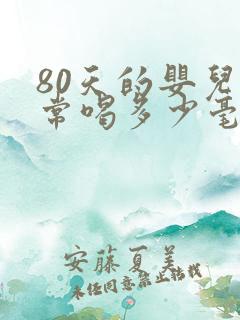 80天的嬰兒
常喝多少毫
安藤夏美
未任同意禁止转载